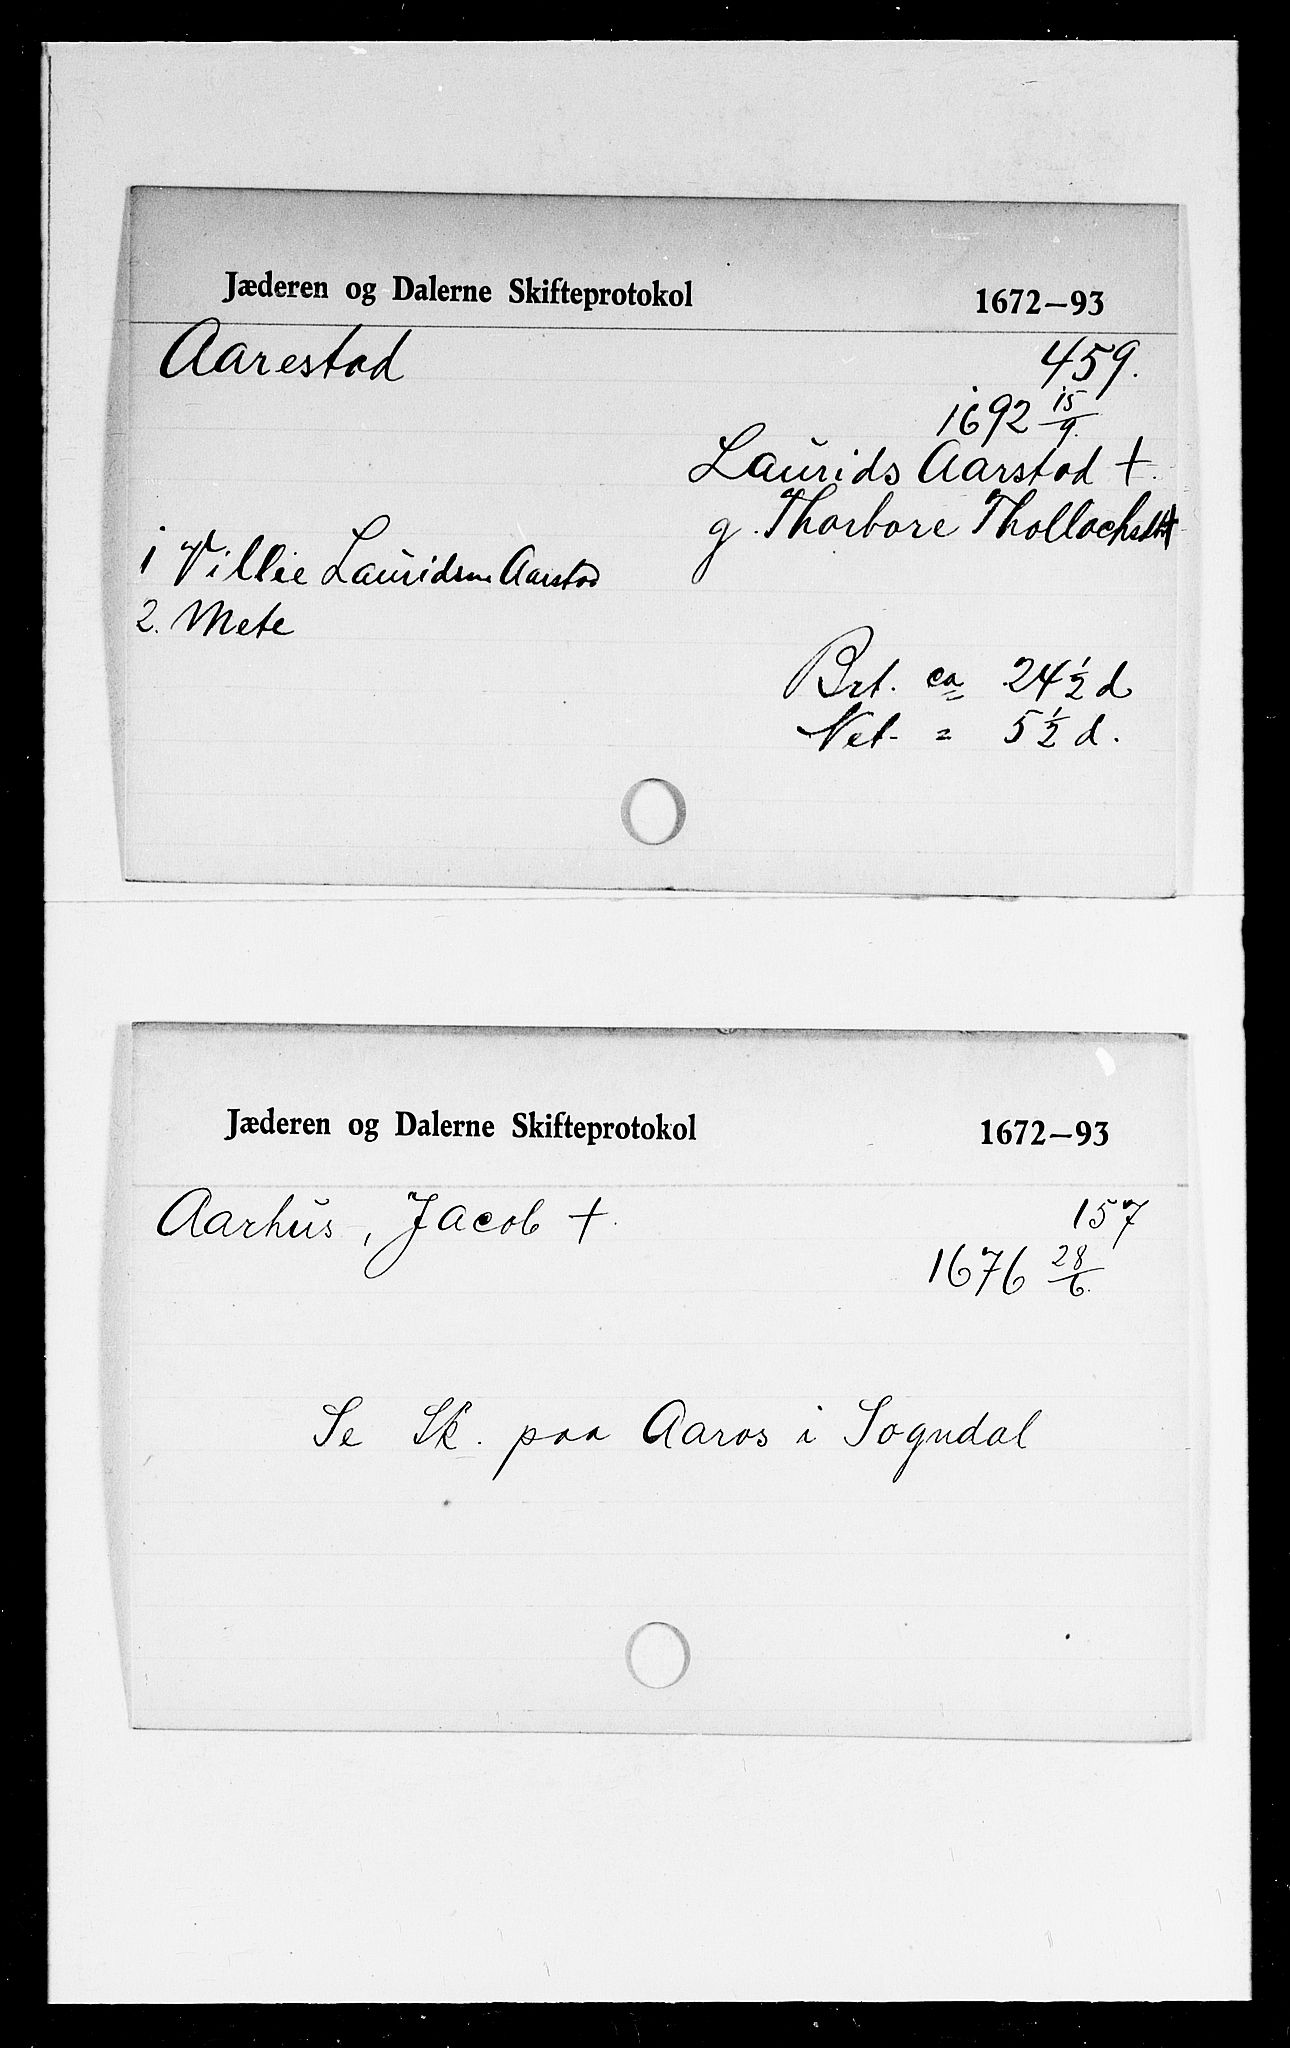 Jæderen og Dalerne Skifteprotokol 1672–93
Aarestad 459.
1692 15/9.
Laurids Aarstad †.
g. Thorbore Thollachsdtr
1 Villie Lauridsen Aarstad
2. Mete
Brt. ca 24 1/2 d
Net. = 5 1/2 d.
Jæderen og Dalerne Skifteprotokol 1672–93
Aarhus, Jacob †. 157
1676 28/6.
Se Sk. paa Aaros i Sogndal